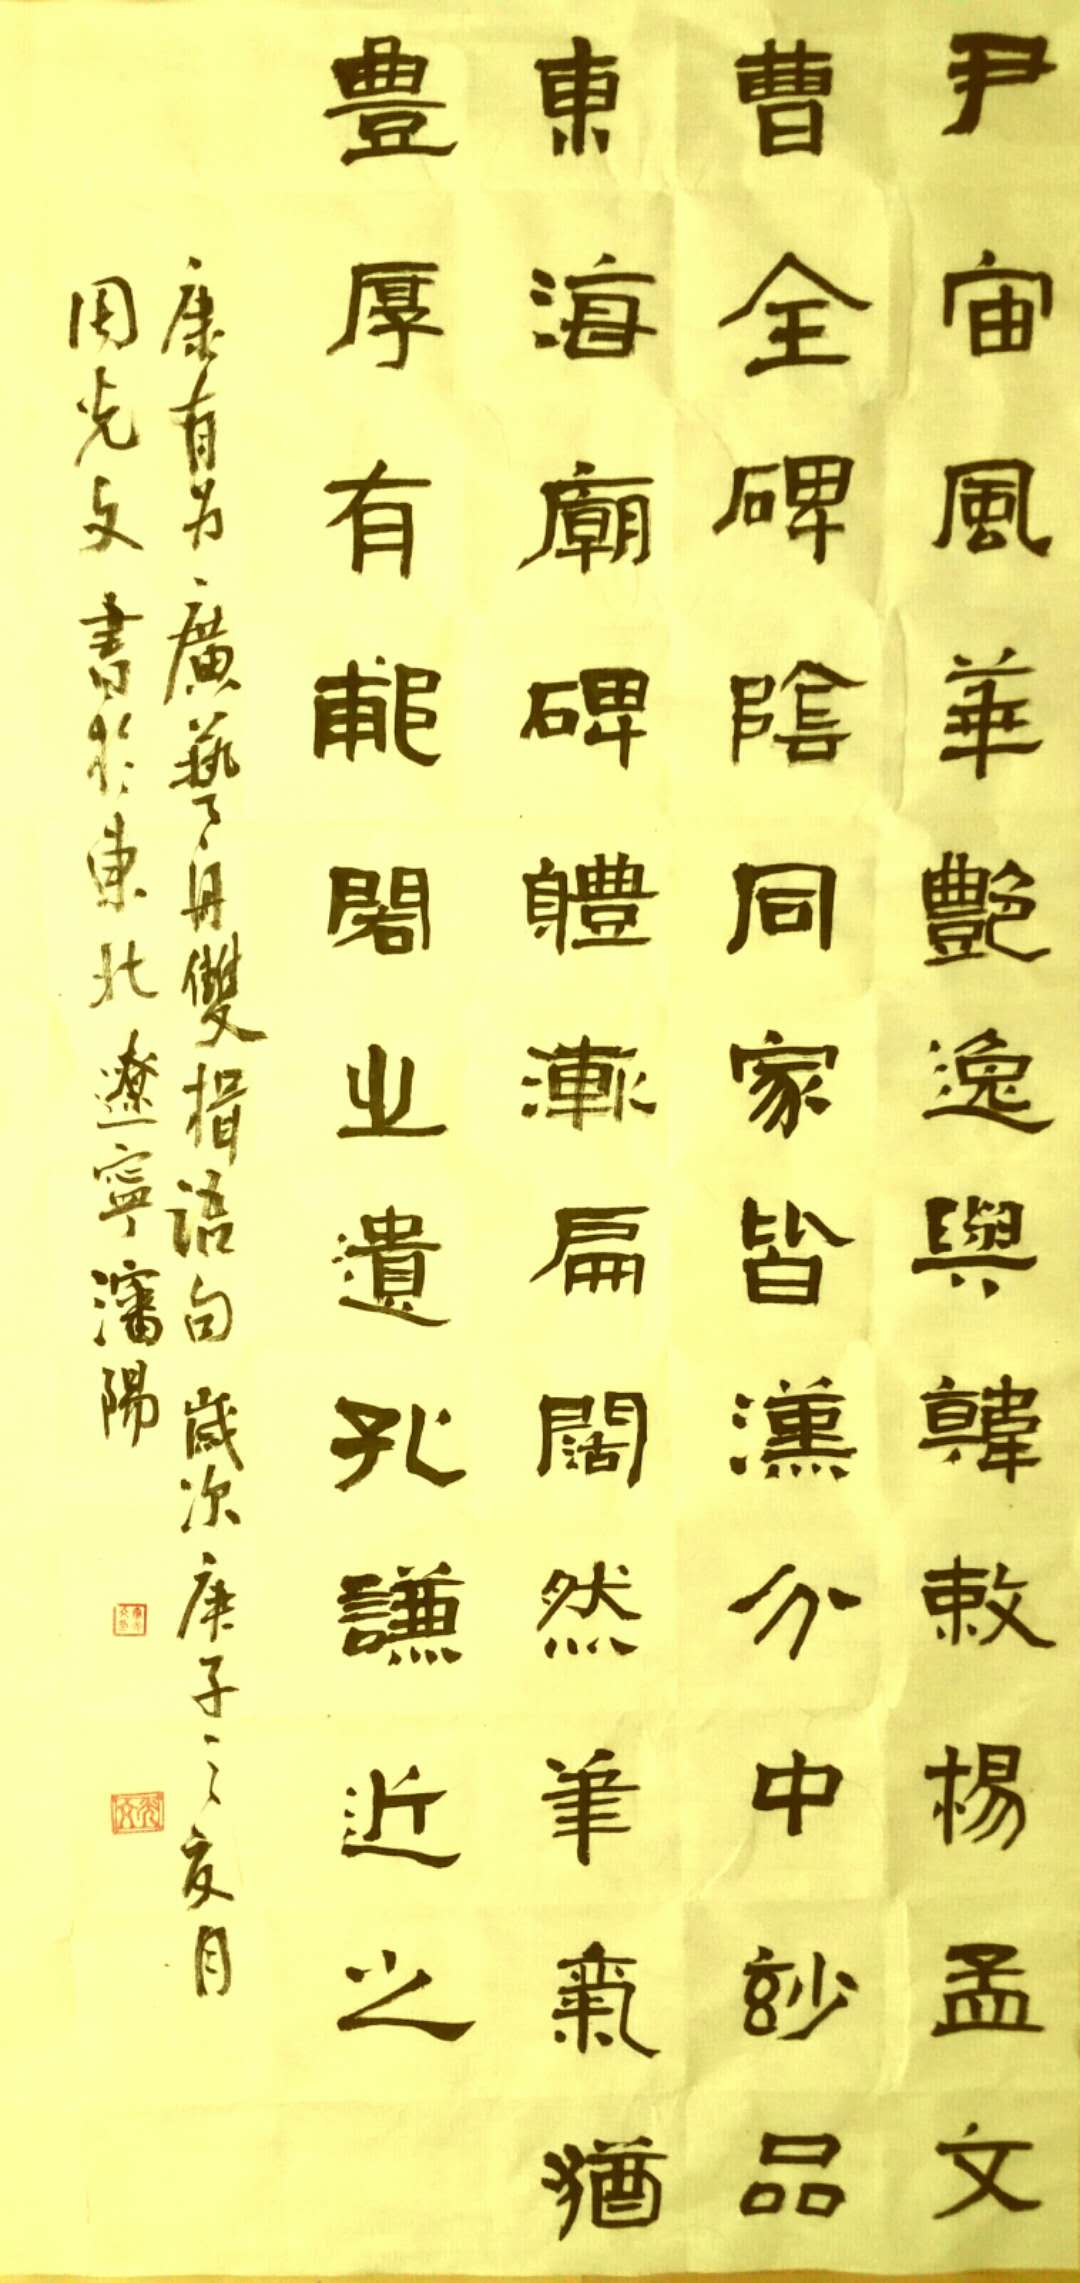 尹宙風華艷逸與韓敕楊孟文
曹全碑陰同家皆漢分中妙品
東海廟碑體漸扁闊然筆氣猶
豊厚有郙閣之遺孔謙近之
康有为廣藝舟雙楫语句歲次庚子之亥月
周光文書於東北遼寧瀋陽